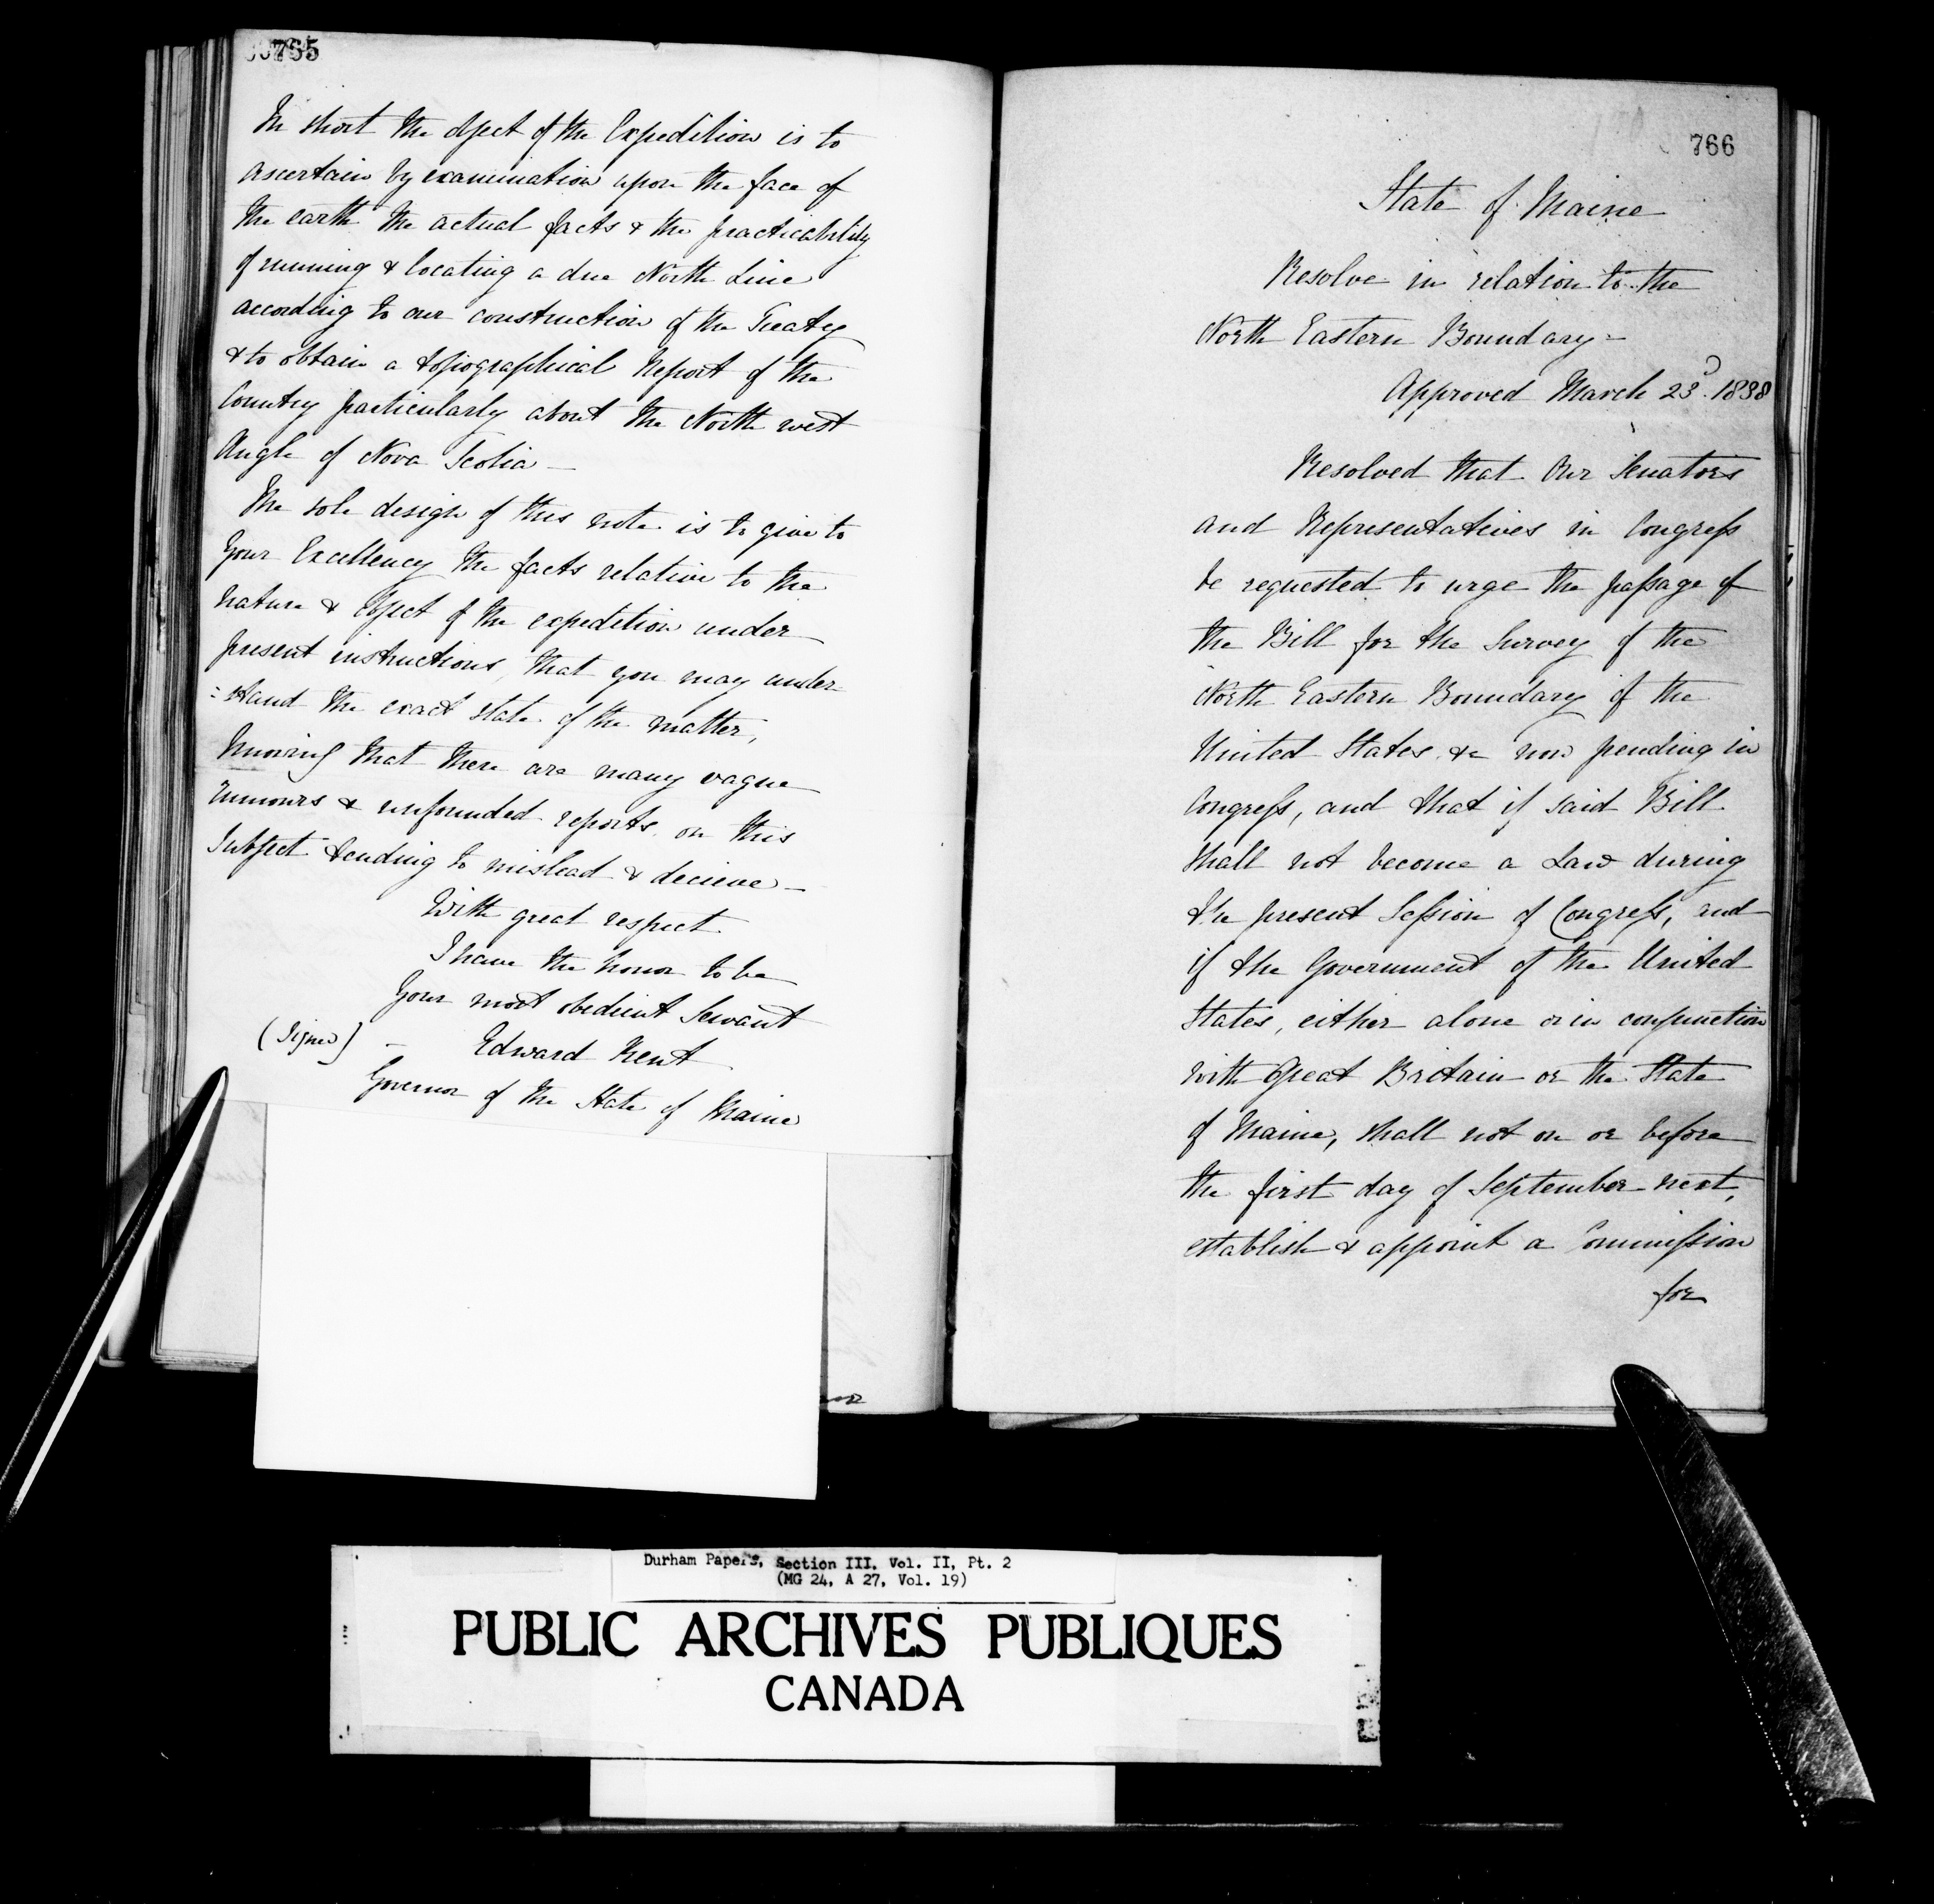 765
In short the object of the Expedition is to
ascertain by examination upon the face of
the earth the actual facts & the practicability
of running & locating a due North Line
according to our construction of the Treaty
& to obtain a topographical Report of the
Country particularly about the North west
Angle of Nova Scotia —
The sole design of this note is to give to
Your Excellency the facts relative to the
nature & object of the expedition under
present instructions, that you may under
=stand the exact state of the matter,
knowing that there are many vague
rumours & unfounded reports on this
subject tending to mislead & decieve —
With great respect
I have the honor to be
Your most obedient Servant
(Signed) — Edward Kent
Governor of the State of Maine
766
State of Maine
Resolve in relation to the
North Eastern Boundary =
Approved March 23d. 1838
Resolved that Our Senators
and Representatives in Congress
be requested to urge the passage of
the Bill for the Survey of the
North Eastern Boundary of the
United States &c now pending in
Congress, and that if said Bill
shall not become a Law during
the present Session of Congress, and
if the Government of the United
States, either alone or in conjunction
with Great Britain or the State
of Maine, shall not on or before
the first day of September next,
establish & appoint a Commission
for
Durham Papers, Section III, Vol. II, Pt. 2
(MG 24, A 27, Vol. 19)
PUBLIC ARCHIVES PUBLIQUES
CANADA